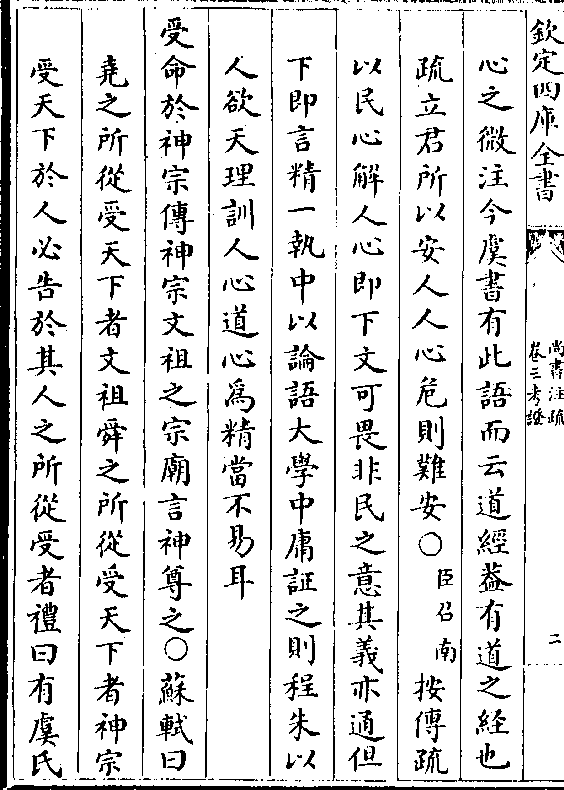 欽定四庫全書
尚書注疏
卷三考證
二
心之微注今虞書有此語而云道經葢有道之経也
疏立君所以安人人心危則難安〇臣召南按傳疏
以民心解人心即下文可畏非民之意其義亦通但
下即言精一執中以論語大學中庸証之則程朱以
人欲天理訓人心道心爲精當不易耳
受命於神宗傳神宗文祖之宗廟言神尊之〇蘇軾曰
堯之所從受天下者文祖舜之所從受天下者神宗
受天下於人必告於其人之所從受者禮曰有虞氏